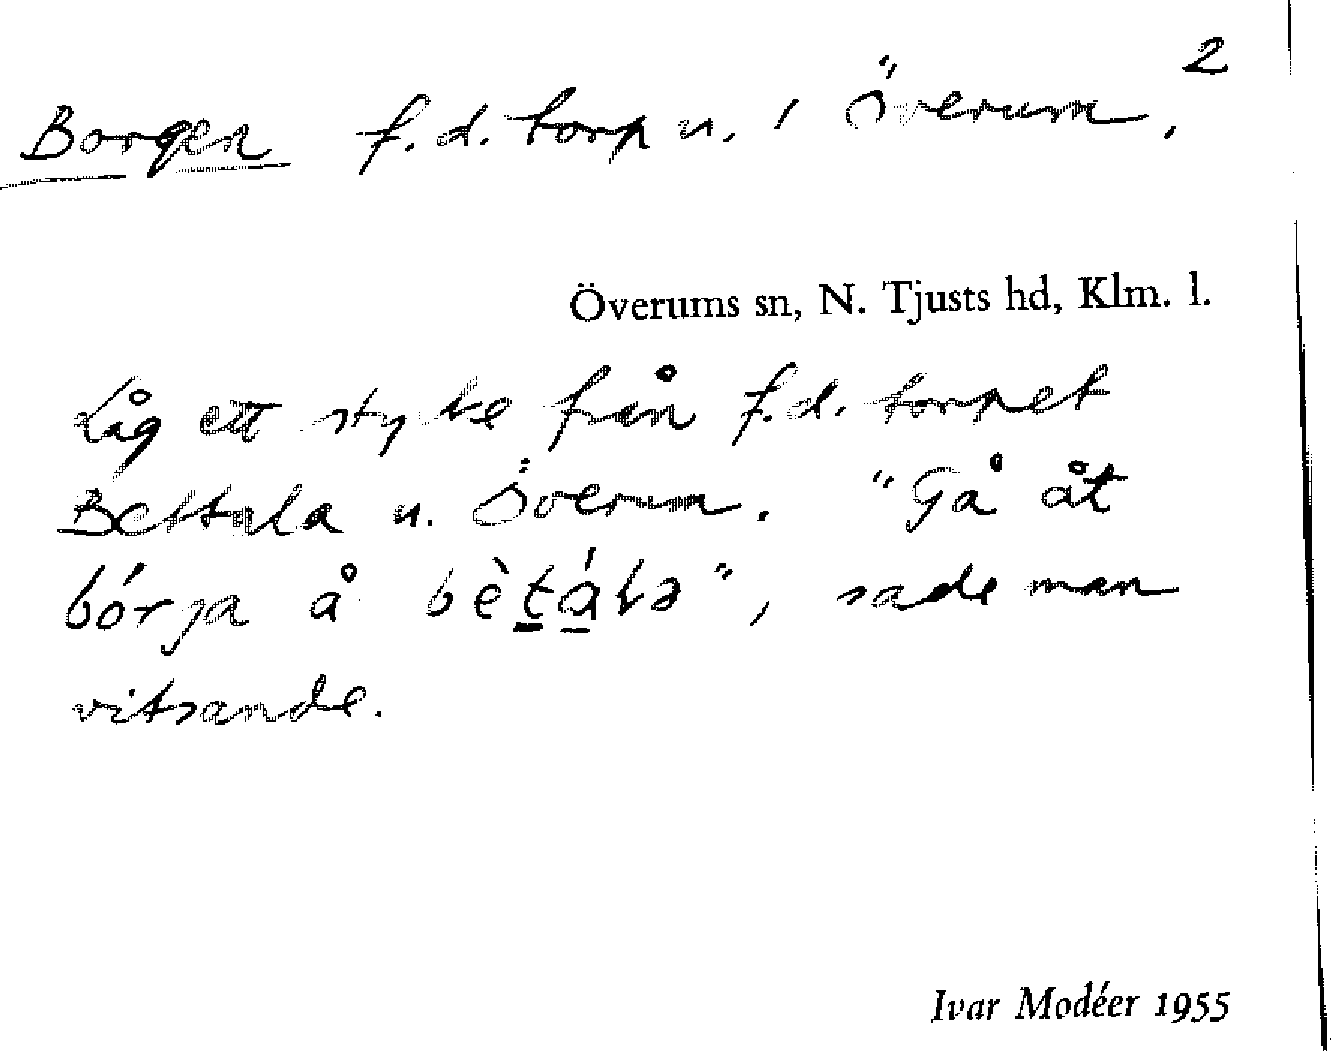 2
Borgen f.d. torp u. Överum.
Överums sn, N. Tjusts hd, Klm. l.
Låg ett stycke från f.d. torpet
u. Överum. "Gå åt
bórja å bètálə", sade man
vitsande.
Ivar Modéer 1955